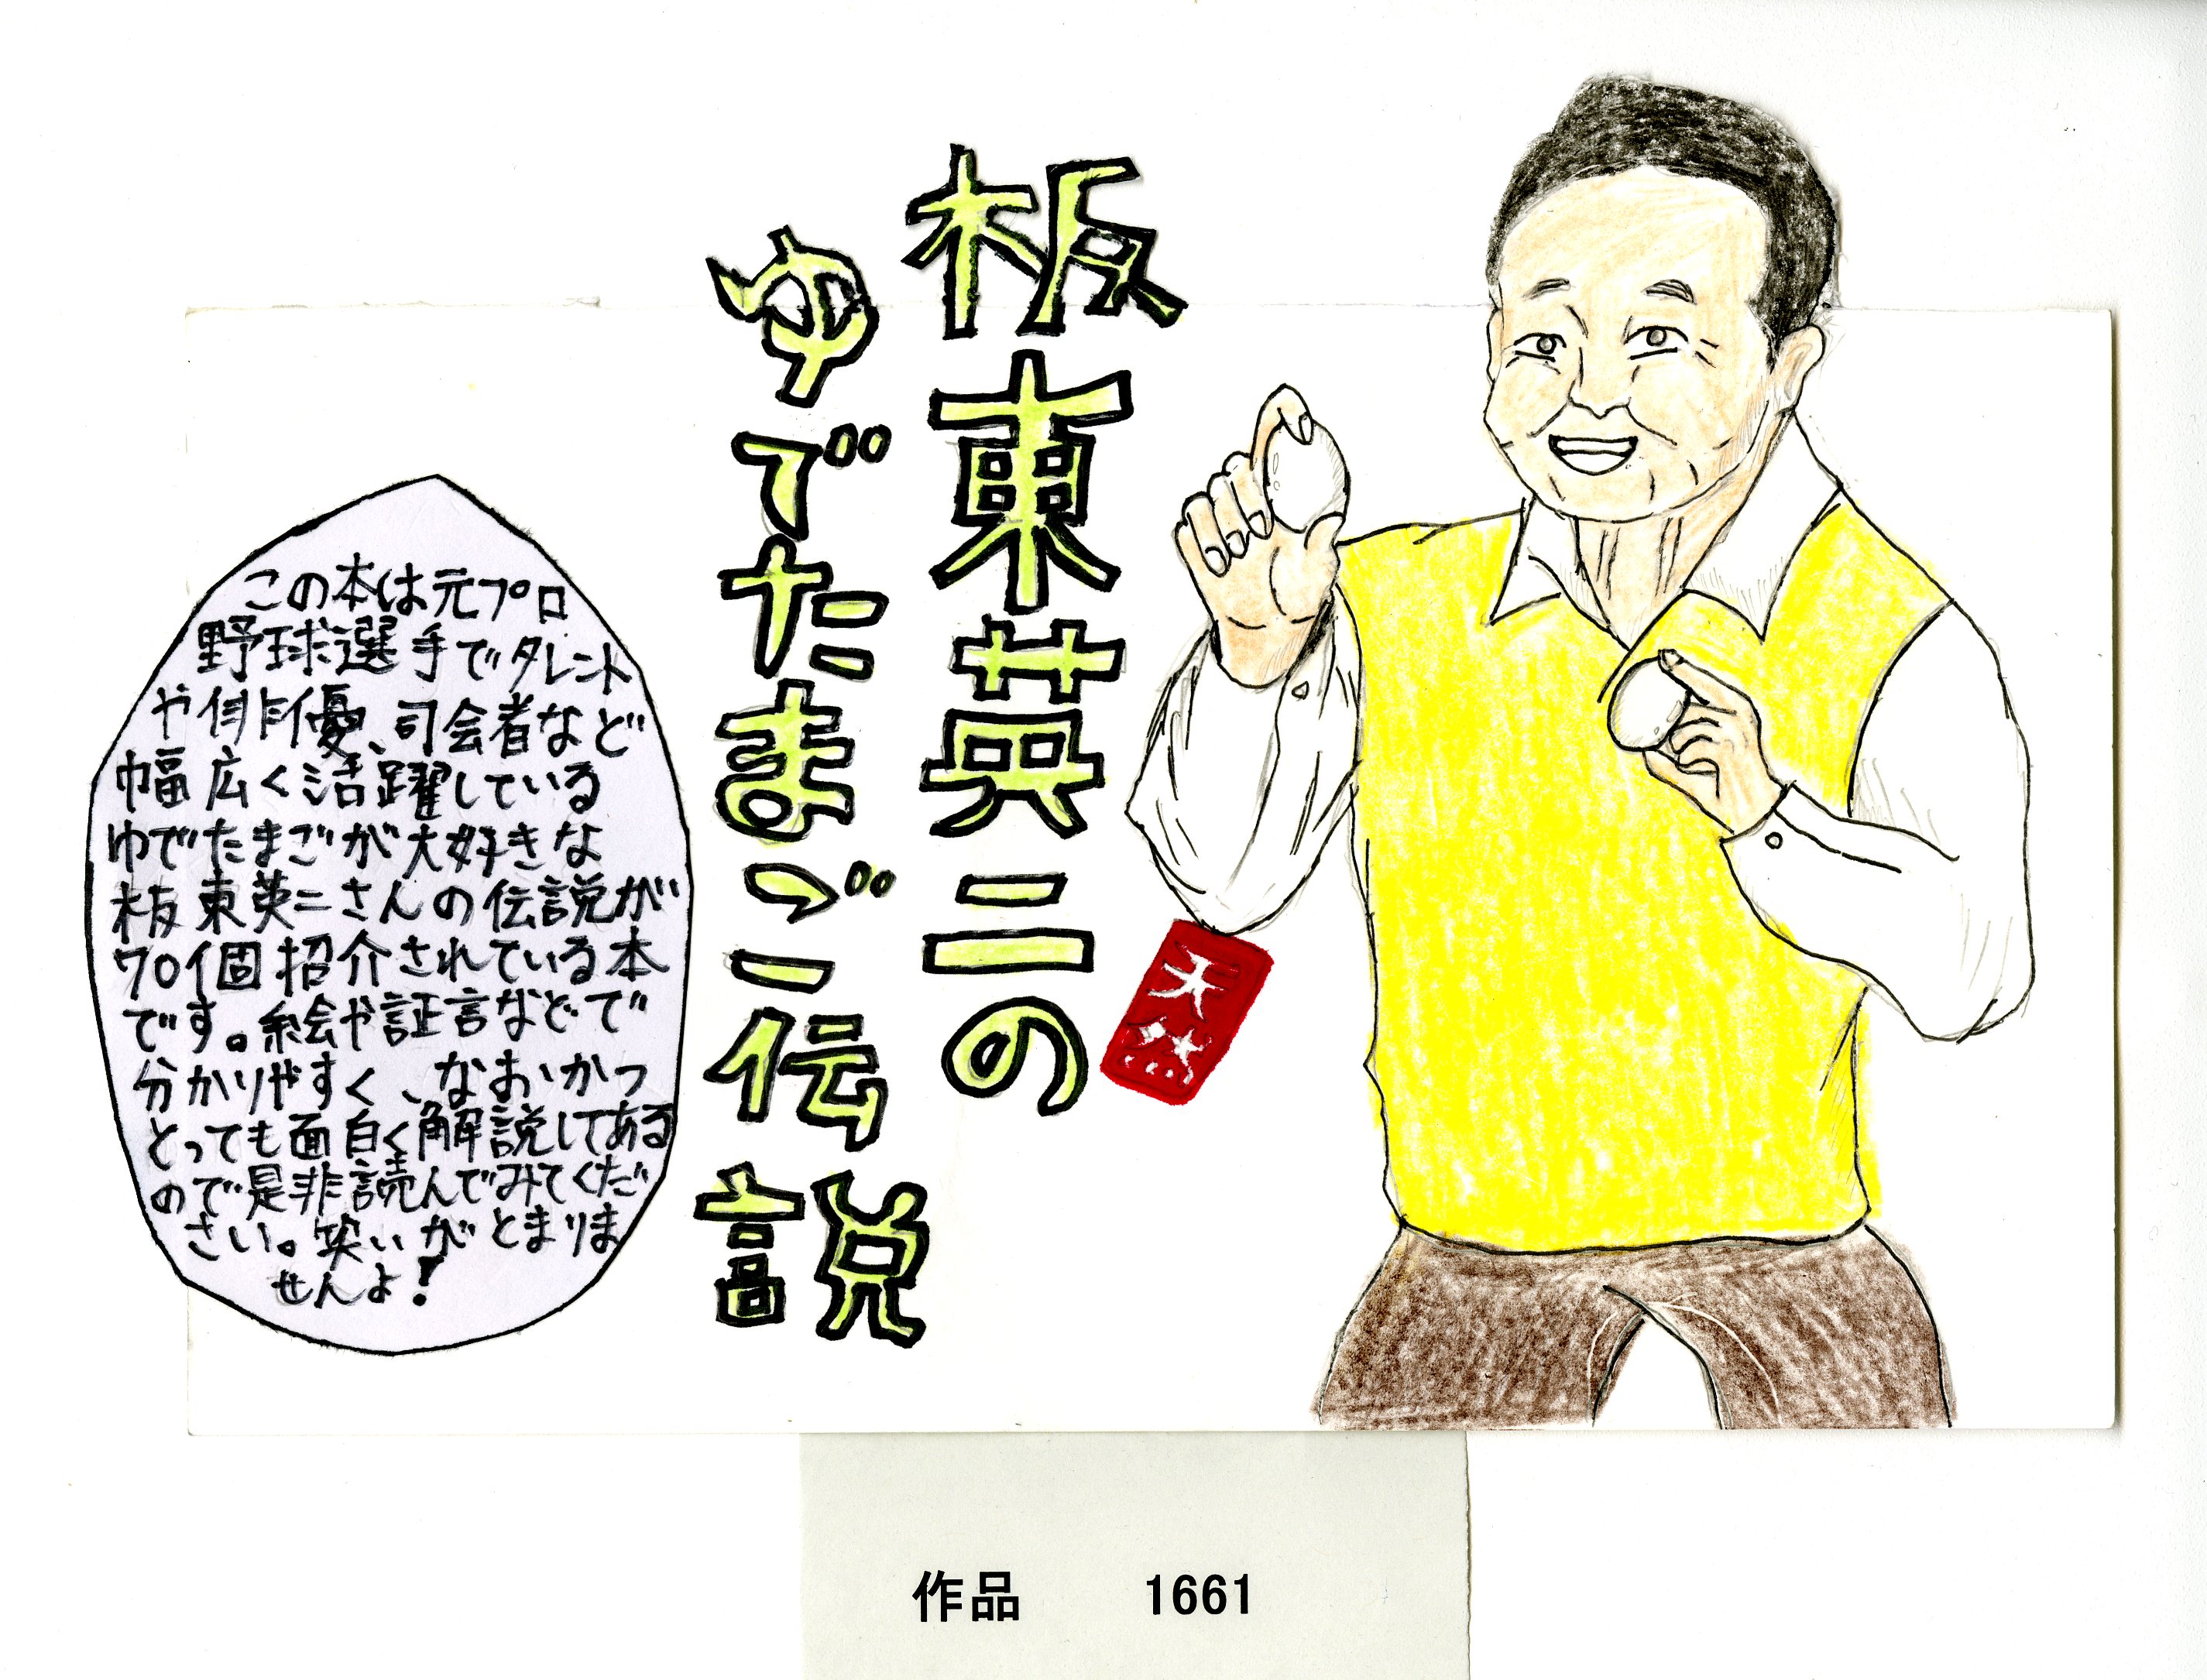 板東英二の
ゆでたまご伝説
この本は元プロ
野球選手でタレント
や俳優、司会者など
幅広く活躍している
ゆでたまごが大好きな
板東英二さんの伝説が
70個紹介されている本
です。絵や証言などで
分かりやすく、なおかつ
とっても面白く解説してある
ので是非読んでみてくだ
さい。笑いがとまりま
せんよ!
天然
作品 1661